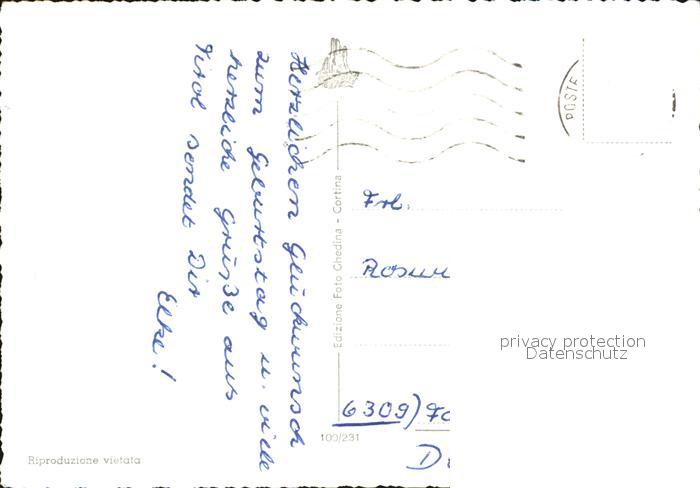 Herzlichen Glückwunsch
zum Geburtstag u. viele
herzliche Grüße aus
Tirol sendet Dir
Elke!
Edizione Foto Ghedina - Cortina
POSTE
Frl.
6309)
privacy protection
Datenschutz
100/231
Riproduzione vietata